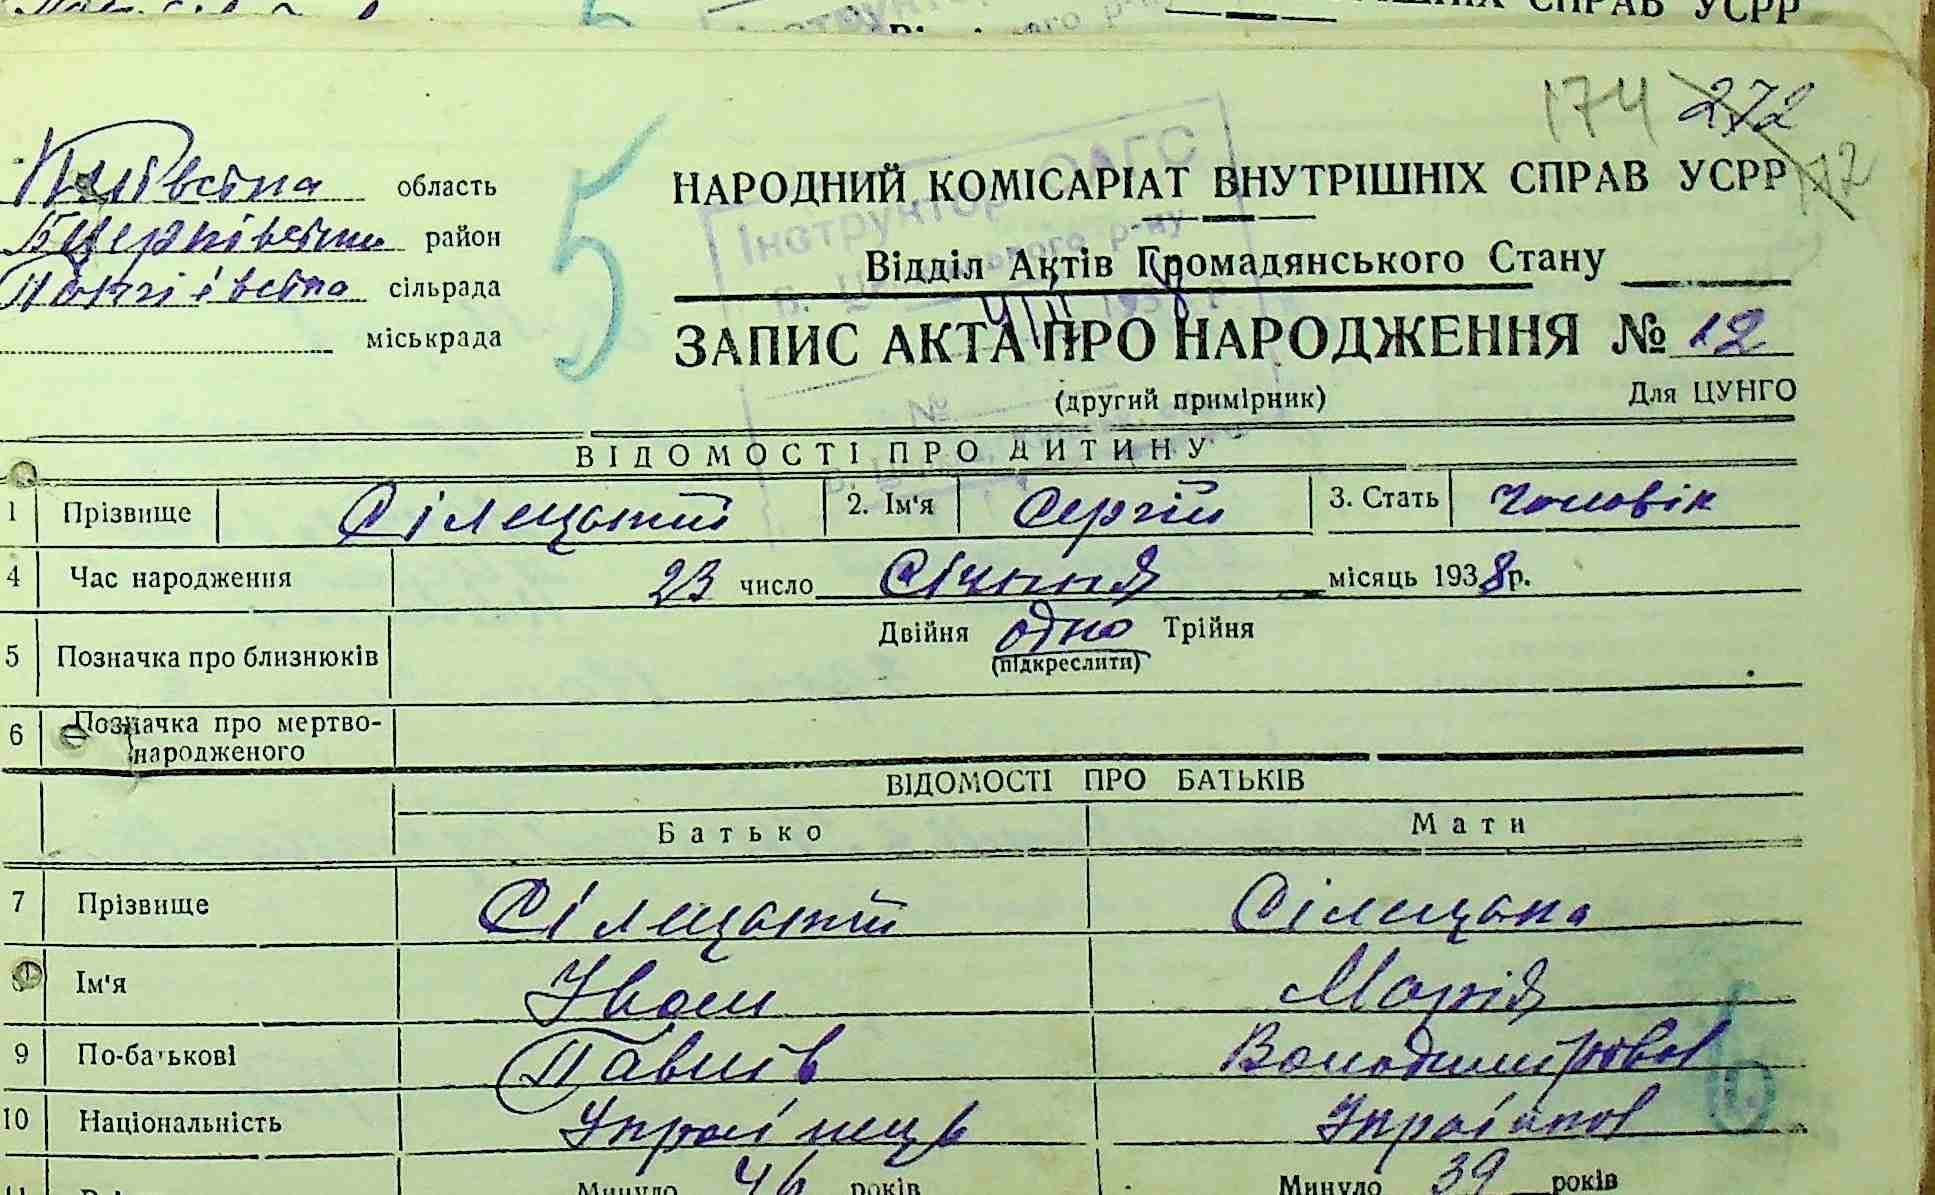 СПРАВ УСРР
174 272
172
Київська область
Бцерківський район
сільрада
міськрада
5
НАРОДНИЙ КОМІСАРІАТ ВНУТРІШНІХ СПРАВ УСРР
Відділ Актів Громадянського Стану
Інструктор ОАГС
ЗАПИС АКТА ПРО НАРОДЖЕННЯ № 12
(другий примірник) Для ЦУНГО
ВІДОМОСТІ ПРО ДИТИНУ
1 Прізвище Сілецький 2. Ім'я Сергій 3. Стать чоловік
4 Час народження 23 число Січння місяць 1938р.
5 Позначка про близнюків Двійня одно Трійня
(підкреслити)
6 Позначка про мертво-
народженого
ВІДОМОСТІ ПРО БАТЬКІВ
Батько Мати
7 Прізвище Сілецький Сілецька
8 Ім'я Іван Марія
9 По-батькові Павлів Володимірова
10 Національність Українець Українка
Минуло 46 років Минуло 39 років